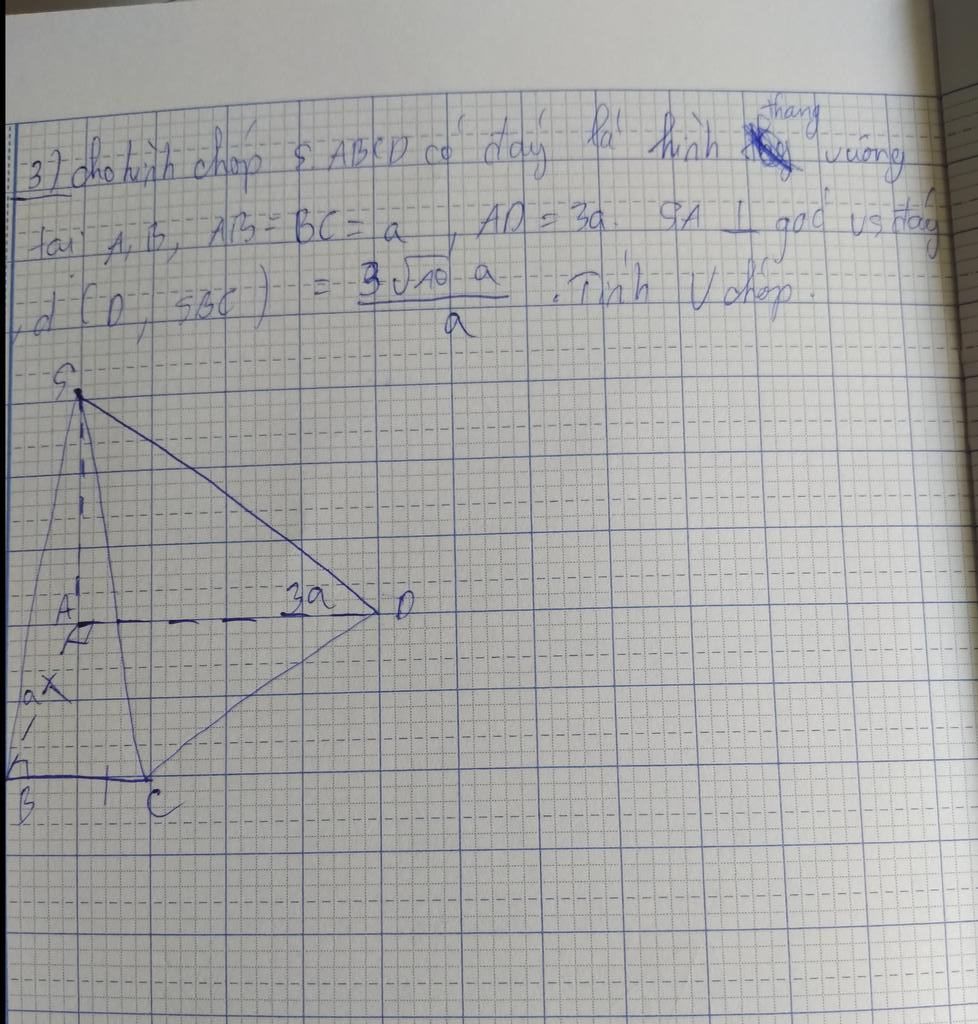 3) cho hình chóp S.ABCD có đáy là hình thang vuông
tại A, B, AB = BC = a, AD = 3a. SA ⊥ góc vs đáy
, d(D, SBC) = \frac{3\sqrt{10} a}{a}. Tính V chóp.
S
A
3a D
a
B C